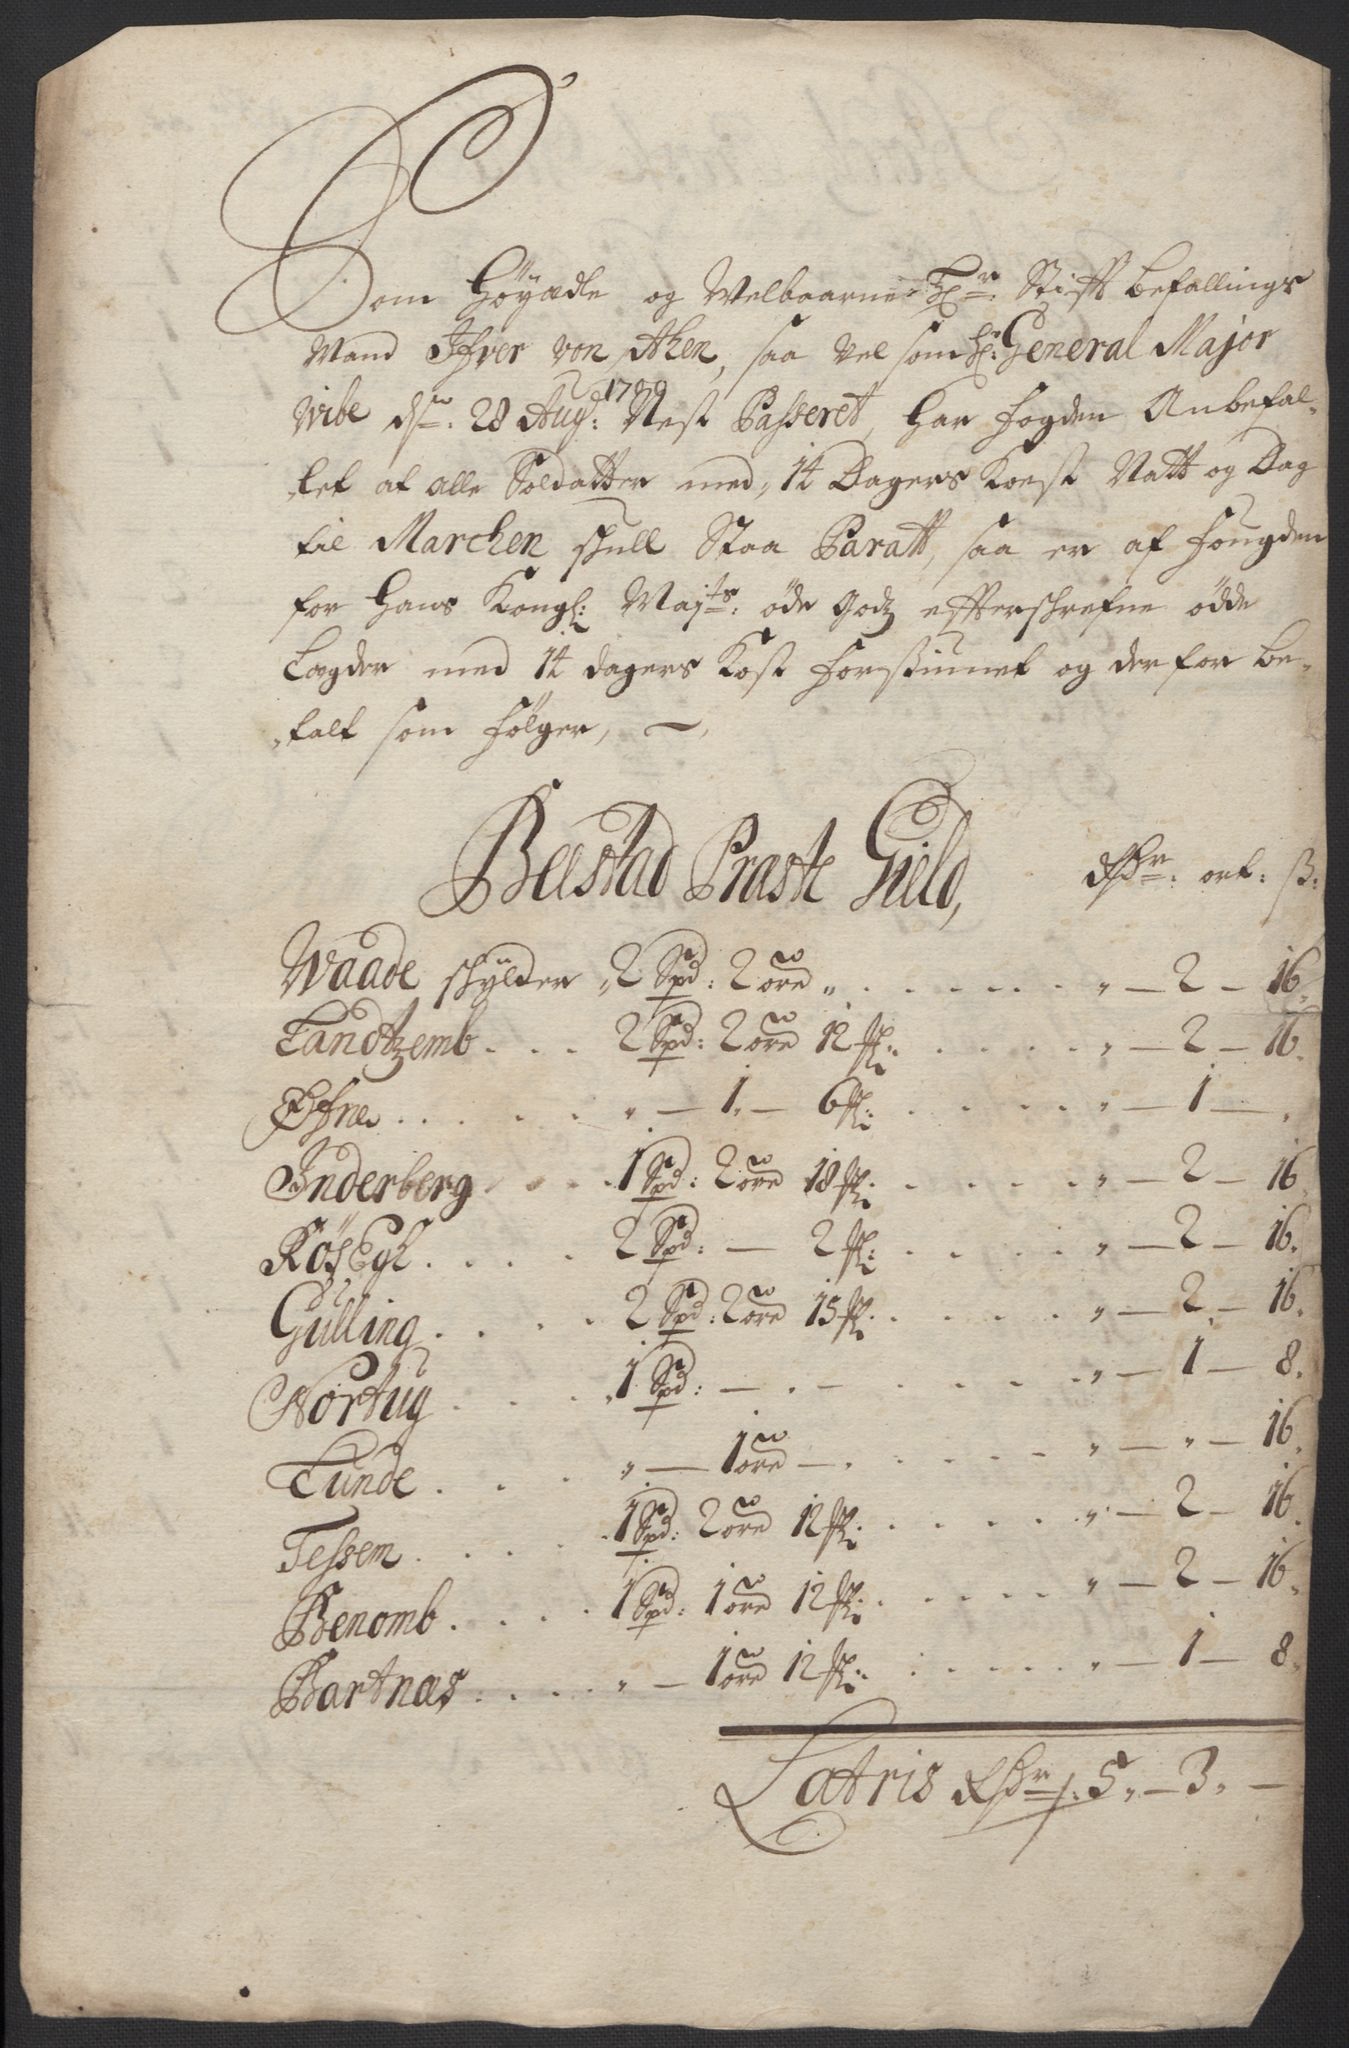 Som Höyædle og Welbaarne Hr: Stifts Befallings
Mand Ifver von Ahen, saa vel som Hr: General Major
Wibe dn. 28 Aug: 1709 Nest Passeret, har fogden Anbefal-
let at alle Soldatter med 14 Dagers Koest Natt og Dag
til Marchen skull Staa Paratt, saa er af fougden
for Hans Kongl: Majts: öde Godz effterschrefne ödde
Lægder med 14 dagers Kost forsiunet og derfor be-
talt som fölger,
Beestad Præste Gield, Rdr: ort: ß:
Waade schylder 2 Spd: 2 ore " . . . " — 2 — 16.
Landtzemb . . . 2 Spd: 2 ore 12 ml: . . . " — 2 — 16.
. . . " — 1 — 6 ml: . . . " — 1 — "
Inderberg . . . 1 Spd: 2 ore 18 ml: . . . " — 2 — 16.
. . . 2 Spd: — 2 ml: . . . " — 2 — 16.
Gulling . . . 2 Spd: 2 ore 15 ml: . . . " — 2 — 16.
Nortug . . . 1 Spd: — . — . . . " — 1 — 8.
Lunde . . . " — 1 ore — . . . " — " — 16.
Tessem . . . 1 Spd: 2 ore 12 ml: . . . " — 2 — 16.
Benomb . . . 1 Spd: 1 ore 12 ml: . . . " — 2 — 16.
Bartnæs . . . " — 1 ore 12 ml: . . . " — 1 — 8.
Latris Rdr: 5 — 3 —